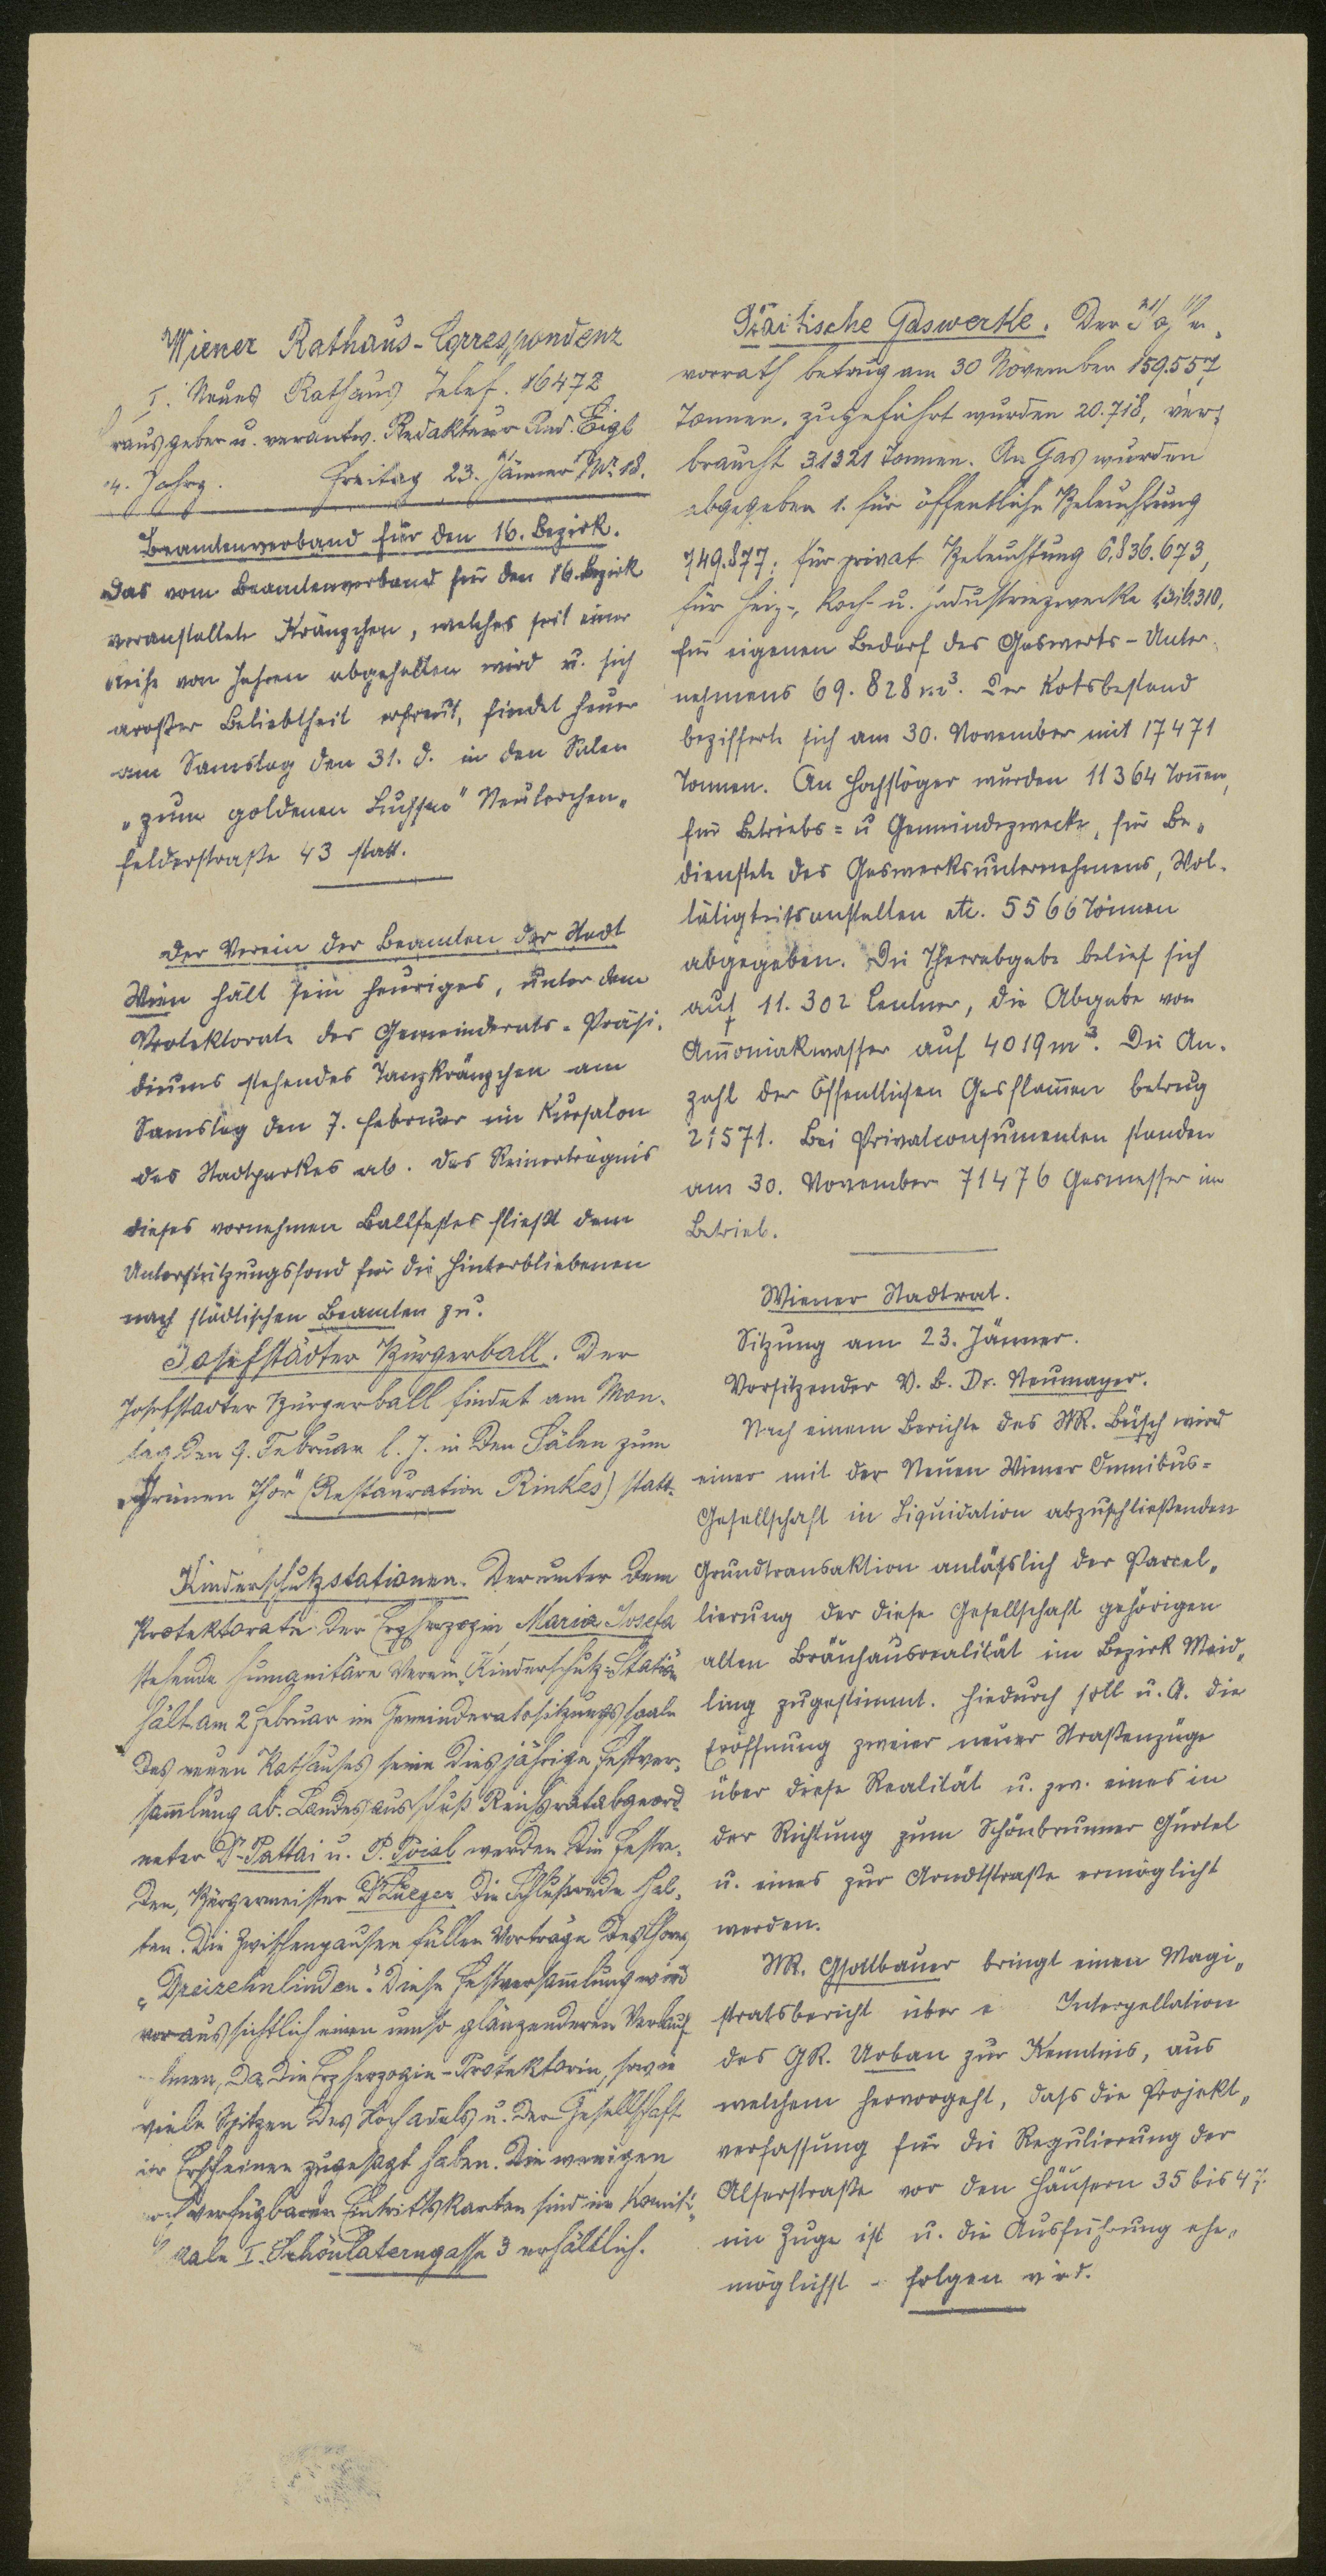 Wiener Rathaus-Correspondenz
I. Neues Rathaus Telef. 16472
rausgeber u. verantw. Redakteur Rud. Eigl
14. Jahrg. Freitag 23. Jänner Nr. 18.
Beamtenverband für den 16. Bezirk.
Das vom Beamtenverband für den 16. Bezirk
veranstaltete Kränzchen, welches seit einer
Reihe von Jahren abgehalten wird u. sich
großer Beliebtheit erfreut, findet heuer
am Samstag den 31. d. in den Sälen
„zum goldenen Luchsen" Neulerchen„
felderstraße 43 statt.
Der Verein der Beamten der Stadt
Wien hält sein heuriges, unter dem
Protektorate des Gemeinderats-Präsi-
diums stehendes Tanzkränzchen am
Samstag den 7. Februar im Kursalon
des Stadtparkes ab. Das Reinerträgnis
dieses vornehmen Ballfestes fließt dem
Unterstützungsfond für die Hinterbliebenen
nach städtischen Beamten zu.
Josefstädter Bürgerball. Der
Josefstädter Bürgerball findet am Mon-
tag den 9. Februar l. J. in den Sälen zum
„Grünen Thor" (Restauration Rinkes) statt.
Kinderschutzstationen. Der unter dem
Protektorate der Erzherzogin Maria Josefa
stehende humanitäre Verein „Kinderschutz-Station
hält am 2 Februar im Gemeinderatssitzungssaale
des neuen Rathauses seine diesjährige Festver-
sammlung ab. Landesausschuß Reichsratabgeord
neter Dr. Pattai u. P. werden die Festre-
den, Bürgermeister Dr Lueger die Schlußrede hal-
ten. Die Zwischenpausen füllen Vorträge des Chores
„Dreizehnlinden". Diese Festversammlung wird
voraussichtlich einen umso glänzenderen Verlauf
nehmen, da die Erzherzogin-Protektorin, sowie
viele Spitzen des Hochadels u. der Gesellschaft
ihr Erscheinen zugesagt haben. Die wenigen
noch verfügbaren Eintrittskarten sind im Komité-
lokale I. Schönlaterngasse 3 erhältlich.
Städtische Gaswerke. Der
vorrath betrug am 30 November 159.557
Tonnen, zugeführt wurden 20.718, ver-
braucht 31321 Tonnen. An Gas wurden
abgegeben 1. für öffentliche Beleuchtung
749.877; für privat Beleuchtung 6,836.673,
für Heiz-, Koch- u. Industriezwecke 1,316.310,
für eigenen Bedarf des Gaswerks-Unter-
nehmens 69.828 m³. Der Koksbestand
bezifferte sich am 30. November mit 17471
Tonnen. An Hochstöger wurden 11364 Tonnen,
für Betriebs= u Gemeindezwecke, für Be„
dienstete des Gaswerksunternehmens, Wol-
tätigkeitsanstalten etc. 5566 Tonnen
abgegeben. Die Theerabgabe belief sich
auf 11.302 Centner, die Abgabe von
Ammoniakwasser auf 4019 m³. Die An-
zahl der öffentlichen Gasflammen betrug
21571. Bei Privatconsumenten standen
am 30. November 71476 Gasmesser im
Betrieb.
Wiener Stadtrat.
Sitzung am 23. Jänner.
Vorsitzender V. B. Dr. Neumayer.
Nach einem Berichte des StR. Büsch wird
einer mit der Neuen Wiener Omnibus-
Gesellschaft in Liquidation abzuschließenden
Grundtransaktion anläßlich der Parcel„
lierung der diese Gesellschaft gehörigen
alten Bräuhausrealität im Bezirk Meid„
ling zugestimmt. Hiedurch soll u. A. die
Eröffnung zweier neuer Straßenzüge
über diese Realität u. zw. eines in
der Richtung zum Schönbrunner Gürtel
u. eines zur Arndtstraße ermöglicht
werden.
StR. Gsottbauer bringt einen Magi„
stratsbericht über e Interpellation
des GR. Urban zur Kenntnis, aus
welchem hervorgeht, dass die Projekt„
verfassung für die Regulierung der
Alserstraße vor den Häusern 35 bis 47
im Zuge ist u. die Ausführung ehe„
möglichst folgen wird.